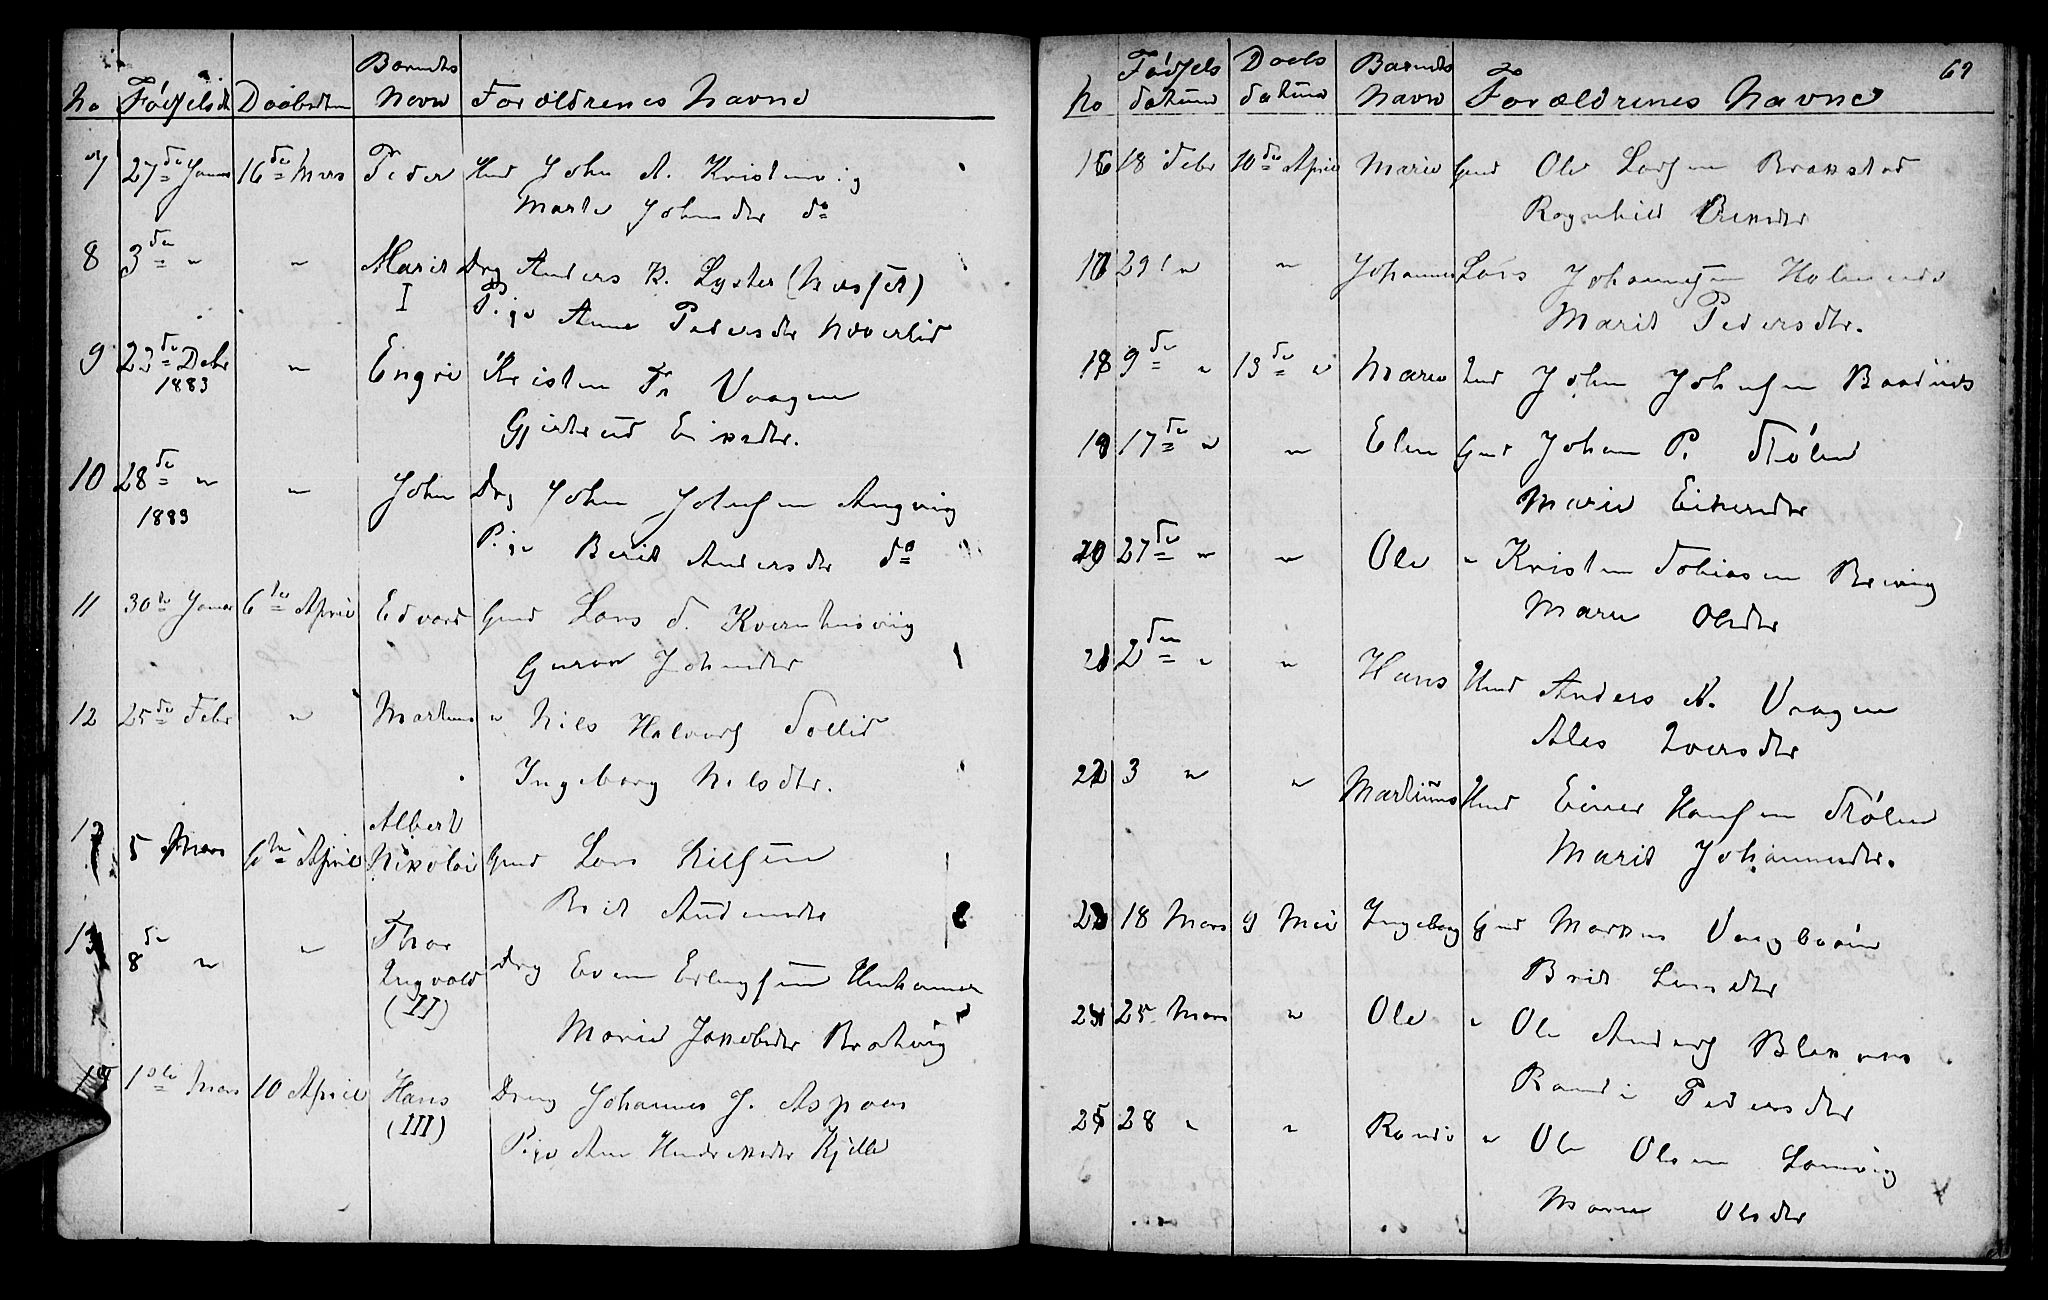 No Fødselsdt Daabsdtm Barnets Navn Forældrenes Navne
7 27de Janu 16de Mars Peder Hmd John A. Kristenvig
Marte Johnsdtr do
8 3de " " Marit Drg Anders K. Lyster (Norset)
I Pige Anne Pedersdtr Noverlid
9 22de Debr " Engri Kristen Fr Vaagen
1883 Gjertrud Eriksdtr.
10 28de " " John Drg John Johnsen Angvig
1883 Pige Berit Andersdtr do
11 30te Janu 6te April Edvard Gmd Lars
Guron Johnsdtr
12 25de Febr " Martinus " Nils Halvors Tollid
Ingeborg Nilsdtr.
5 Mars 6te April Albert Nikolai Gmd Lars Nilsen
Brit
13 8de " " Thor Ingvald (II) Drg Even Erlingsen
Marie Jakobsdtr Brathvig
1ste Mars 10 April Hans (III) Dreng Johannes J. Aspoen
Pige Ane Hendriksdtr Kjelle
69
No Fødsels datum Daabs datum Barnets Navn Forældrenes Navne
16 18 Febr 10de April Marie Gmd Ole Larsen Brakstad
Ragnhild
17 29 " " Johannes Lars Johannesen
Marit Pedersdtr.
18 9de " 13de " Maren Imd John Johnsen
19 17de " " Elen Gmd Johan P. Stølen
Marie Einersdtr
20 27de " " Ole " Kristen Tobiasen
Maren Olsdtr
21 2den " " Hans Hmd Anders A. Vaagen
Ales Iversdtr
22 3 " " Martinus Hmd Einer Hansen Stølen
Marit Johannesdtr.
23 18 Mars 9 Mai Ingeborg Gmd Markus Vaagbøen
Brit Larsdtr
24 25 Mars " Ole " Ole Anders
Randi Pedersdtr
25 28 " " Randi " Ole Olsen
Maren Olsdtr